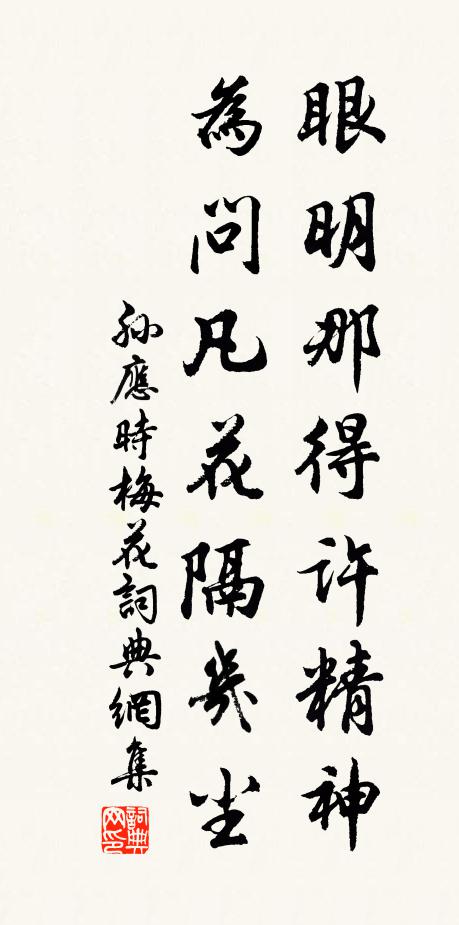 眼明那得許精神
為問凡花隔幾尘
孫應時梅花詞典網集
詞典
网印